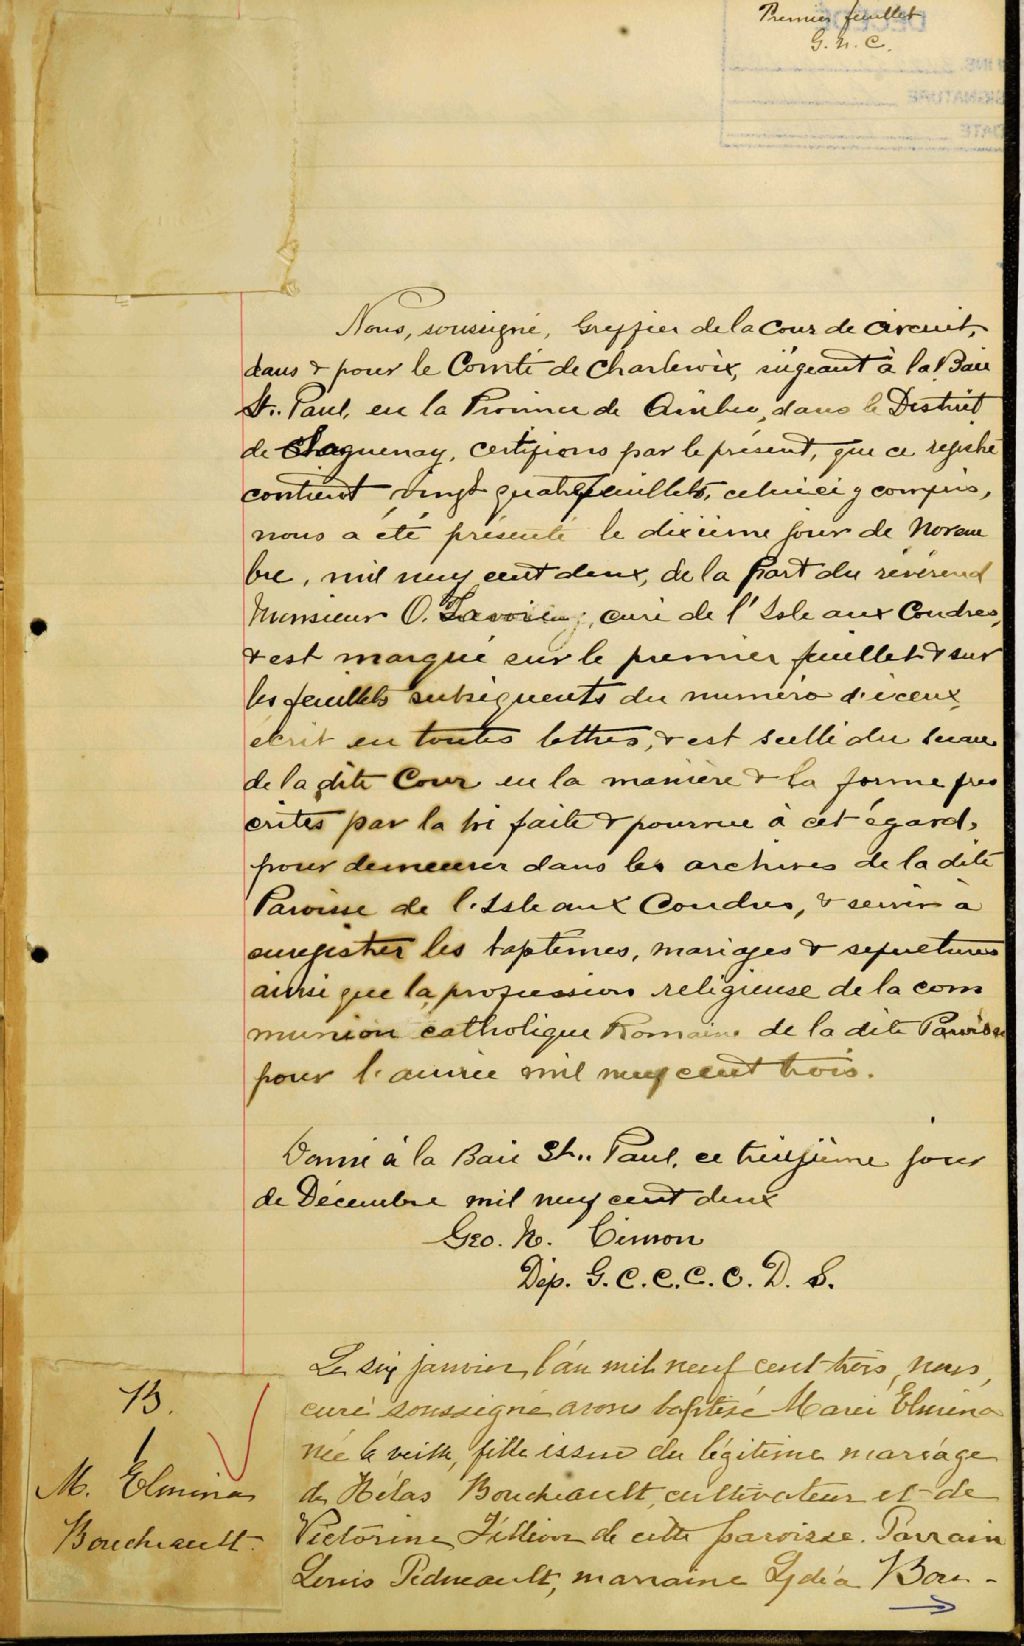 Premier feuillet
G. N. C.
Nous, soussigné, Greffier de la Cour de Circuit,
dans & pour le Comté de Charlevoix, siégeant à la Baie
St. Paul, en la Province de Québec, dans le District
de Saguenay, certifions par le présent, que ce registre
contient vingt quatre feuillets, celui ci y compris,
nous a été présenté le dixième jour de Novem
bre, mil neuf cent deux, de la part du révérend
Monsieur O. Lavoie, curé de l'Isle aux Coudres,
& est marqué sur le premier feuillet & sur
les feuillets subséquents du numéro d'iceux,
écrit en toutes lettres, & est scellé du sceau
de la dite Cour en la manière & la forme pres
crites par la loi faite & pourvue à cet égard,
pour demeurer dans les archives de la dite
Paroisse de l'Isle aux Coudres, & servir à
enregistrer les baptêmes, mariages & sépultures
ainsi que la profession religieuse de la com
munion catholique Romaine de la dite Paroisse
pour l'année mil neuf cent trois.
Donné à la Baie St. Paul, ce treizième jour
de Décembre mil neuf cent deux
Geo. N. Cimon
Dép. G. C. C. C. C. D. S.
B.
1
M. Elmina
Boudreault.
Le six janvier l'an mil neuf cent trois, nous,
curé soussigné avons baptisé Marie Elmina
née la veille, fille issue du légitime mariage
de Hélas Boudreault, cultivateur et de
Victorine Fillion de cette paroisse. Parrain
Louis Pedneault, marraine Lydia Bou-